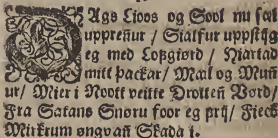 DAgs Lioos og Sool nu so
upprenur / Sialfur uppstijg
eg med Lofgiørd / Hiartad
mitt þackar / Mal og Mun
ur / Mier i Noott veitte Drotteñ Vørd /
Fra Satans Snøru foor eg frij / Fieck
Mirkrum øngvañ Skada i.